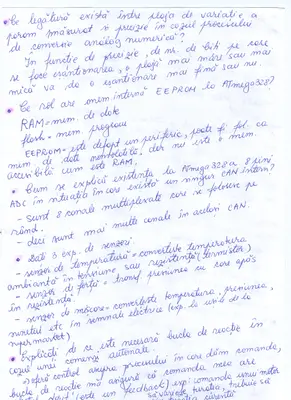 • Ce legătură există între plaja de variație a
param măsurat și precizie în cazul procesului
de conversie analog numerică?
In funcție de precizie, de nr. de biți pe care
se face eșantionarea, o plajă mai mare sau mai
mică va da o eșantionare mai fină sau nu.
• Ce rol are mem internă EEPROM la ATmega328?
RAM = mem. de date
flash = mem. program
EEPROM - este defapt un periferic, poate fi fol. ca
mem de date nevolatilă, dar nu este o mem.
accesibilă cum este RAM.
• Cum se explică existența la ATmega328 a 8 pini
ADC în situația în care există un singur CAN intern?
- sunt 8 canale multiplexate care se folosesc pe
rând.
- deci sunt mai multe canale în același CAN.
• Dați 3 exp. de senzori.
- senzor de temperatură = convertește temperatura
ambiantă în tensiune sau rezistență (termistor)
- senzor de forță = transf. presiunea cu care apăs
în rezistență
- senzor de = convertește temperatura, presiunea,
sunetul etc în semnale electrice (exp. la uși de la
supermarket)
• Explicați de ce este necesară bucla de reacție în
cazul unei comenzi automate.
- oferă control asupra procesului în care dăm comanda,
bucla de reacție mă asigură că comanda mea are
(feedback) exp: comanda unui motor
să varieze turația, trebuie să